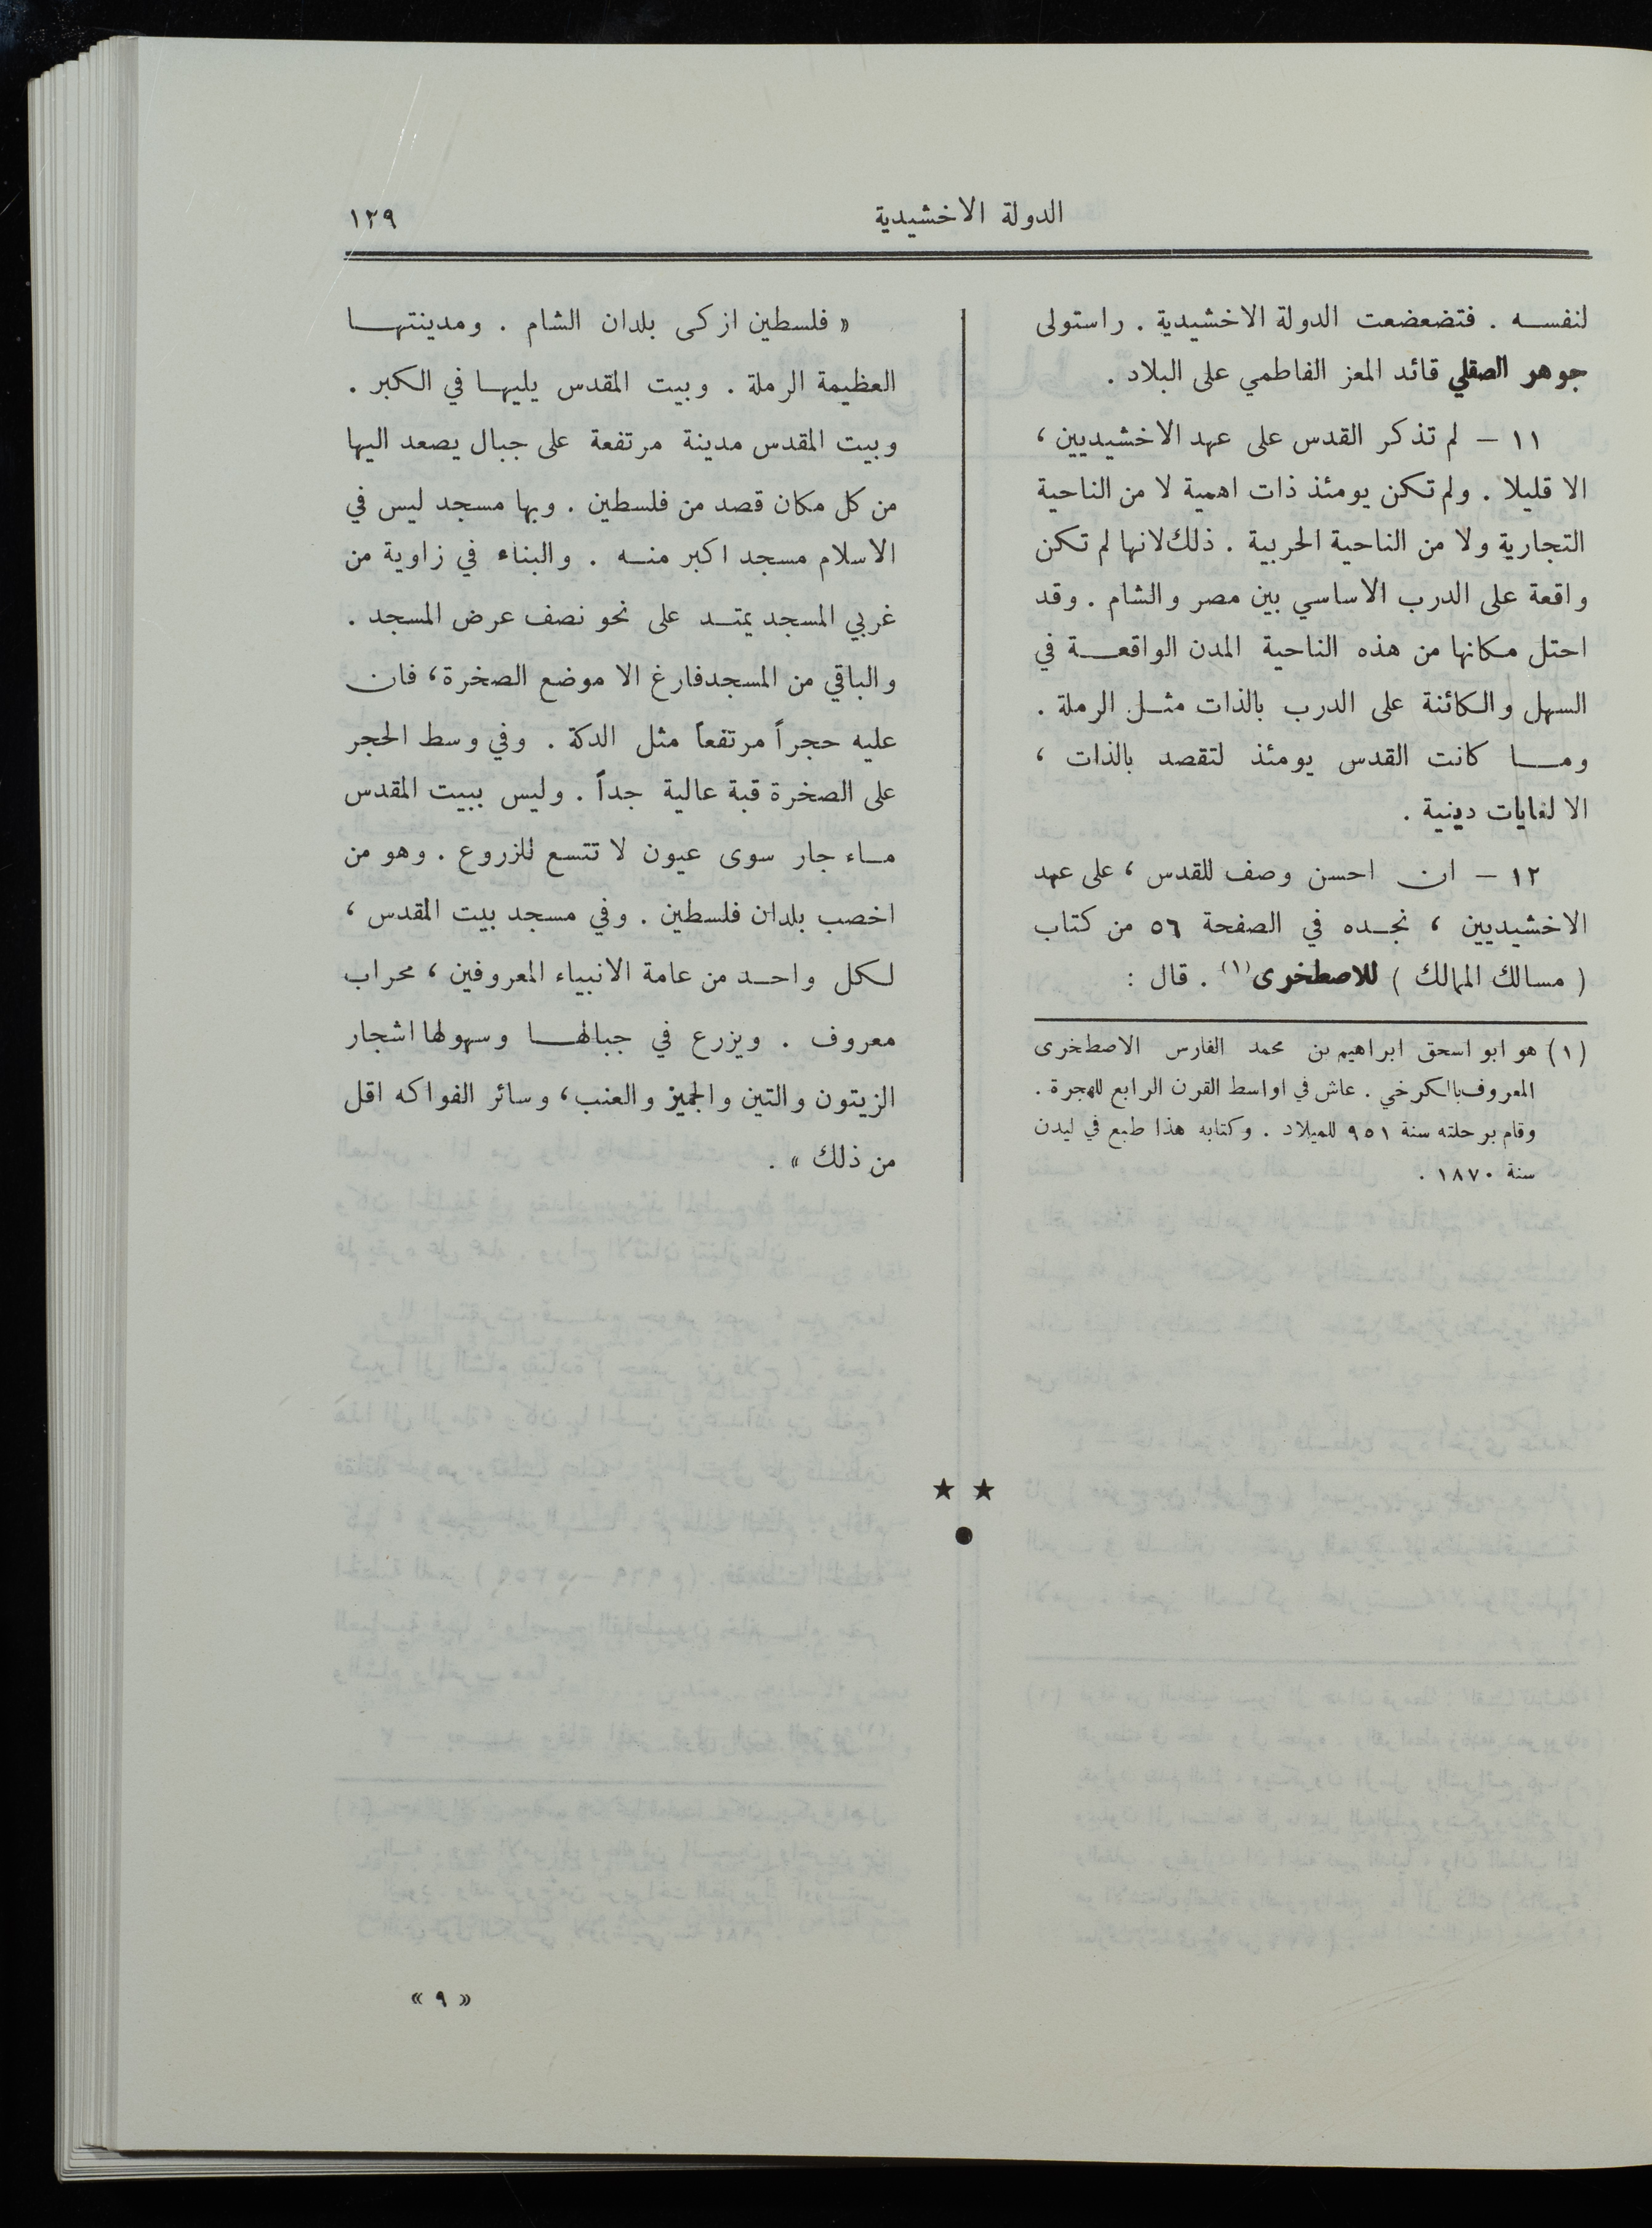 الدولة الاخشيدية
١٢٩
لنفسه . فتضعضعت الدولة الاخشيدية . راستولى
جوهر الصقلي قائد المعز الفاطمي على البلاد .
١١ - لم تذكر القدس على عهد الاخشيديين ،
الا قليلا . ولم تكن يومئذ ذات اهمية لا من الناحية
التجارية ولا من الناحية الحربية . ذلك لانها لم تكن
واقعة على الدرب الاساسي بين مصر والشام . وقد
احتل مكانها من هذه الناحية المدن الواقعة في
السهل والكائنة على الدرب بالذات مثل الرملة .
وما كانت القدس يومئذ لتقصد بالذات ،
الا لغايات دينية .
١٢ - ان احسن وصف للقدس ، على عهد
الاخشيديين ، نجده في الصفحة ٥٦ من كتاب
( مسالك الممالك ) للاصطخرى (١) . قال :
(١) هو ابو اسحق ابراهيم بن محمد الفارس الاصطخرى
المعروف بالكرخي . عاش في اواسط القرن الرابع للهجرة .
وقام برحلته سنة ٩٥١ للميلاد . وكتابه هذا طبع في ليدن
سنة ١٨٧٠ .
« فلسطين ازكى بلدان الشام . ومدينتها
العظيمة الرملة . وبيت المقدس يليها في الكبر .
وبيت المقدس مدينة مرتفعة على جبال يصعد اليها
من كل مكان قصد من فلسطين . وبها مسجد ليس في
الاسلام مسجد اكبر منه . والبناء في زاوية من
غربي المسجد يمتد على نحو نصف عرض المسجد .
والباقي من المسجد فارغ الا موضع الصخرة ، فان
عليه حجراً مرتفعاً مثل الدكة . وفي وسط الحجر
على الصخرة قبة عالية جداً . وليس ببيت المقدس
ماء جار سوى عيون لا تتسع للزروع . وهو من
اخصب بلدان فلسطين . وفي مسجد بيت المقدس ،
لكل واحد من عامة الانبياء المعروفين ، محراب
معروف . ويزرع في جبالها وسهولها اشجار
الزيتون والتين والجميز والعنب ، وسائر الفواكه اقل
من ذلك » .
« ٩ »